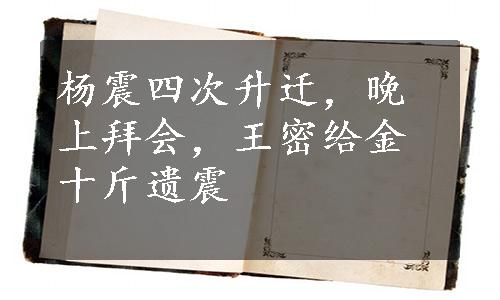 杨震四次升迁，晚
上拜会，王密给金
十斤遗震